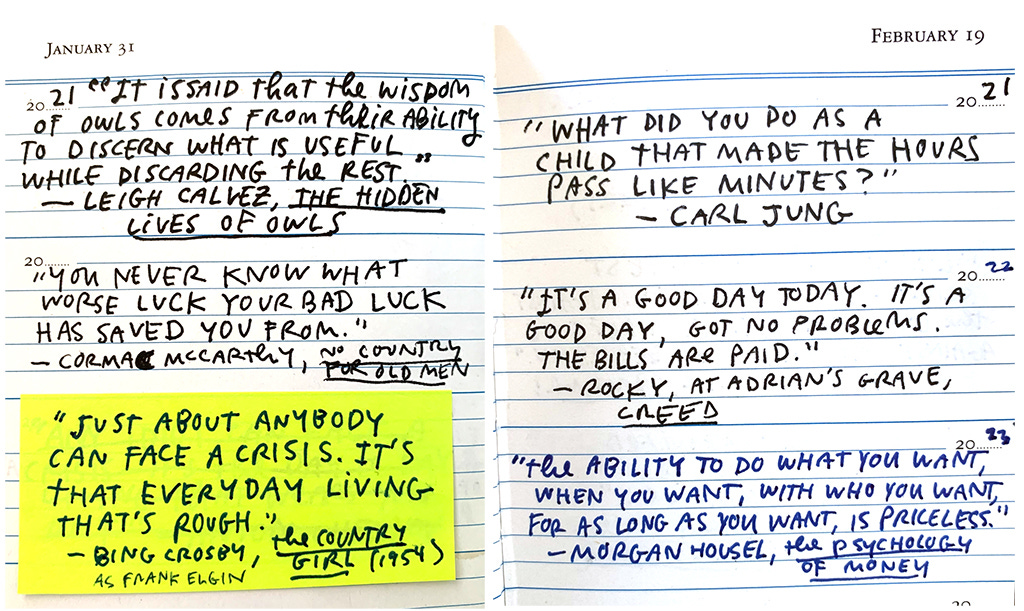 JANUARY 31
2021 "IT IS SAID that the WISDOM
OF OWLS COMES FROM thEIR ABILITY
TO DISCERN WHAT IS USEFUL
WHILE DISCARDING the REST."
— LEIGH CALVEZ, THE HIDDEN
LIVES OF OWLS
20
"YOU NEVER KNOW WHAT
WORSE LUCK YOUR BAD LUCK
HAS SAVED YOU FROM."
— CORMAC MCCARthy, NO COUNTRY
FOR OLD MEN
"JUST ABOUT ANYBODY
CAN FACE A CRISIS. IT'S
tHAT EVERYDAY LIVING
THAT'S ROUGH."
— BING CROSBY, the COUNTRY
GIRL (1954)
AS FRANK ELGIN
FEBRUARY 19
2021
"WHAT DID YOU DO AS A
CHILD THAT MADE THE HOURS
PASS LIKE MINUTES?"
— CARL JUNG
2022
"IT'S A GOOD DAY TODAY. IT'S A
GOOD DAY, GOT NO PROBLEMS.
THE BILLS ARE PAID."
— ROCKY, AT ADRIAN'S GRAVE,
CREED
2023
"the ABILITY TO DO WHAT YOU WANT,
WHEN YOU WANT, WITH WHO YOU WANT,
FOR AS LONG AS YOU WANT, IS PRICELESS."
— MORGAN HOUSEL, the PSYCHOLOGY
OF MONEY
20